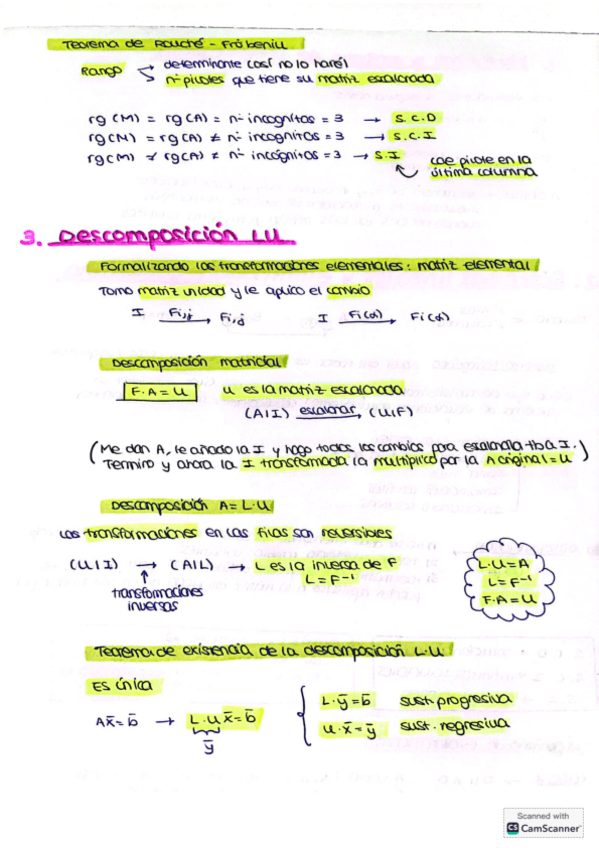 Teorema de Rouché - Fröbeniu
Rango → determinante (así no lo haré)
→ nº pivotes que tiene su matriz escalonada
rg(M) = rg(A) = nº incognitas = 3 → S.C.D
rg(M) = rg(A) ≠ nº incognitas = 3 → S.C.I
rg(M) ≠ rg(A) ≠ nº incógnitas = 3 → S.I
cae pivote en la
última columna
3. Descomposición LU
Formalizando las transformaciones elementales: matriz elemental
Tomo matriz unidad y le aplico el cambio
I Fi,j → Fi,j I Fi(α) → Fi(α)
Descomposición matricial
F·A = U U es la matriz escalonada
(A|I) escalonar → (U|F)
(Me dan A, le añado la I y hago todos los cambios para escalonarla tb a I.
Termino y ahora la I transformada la multiplico por la A original = U)
Descomposición A = L·U
Las transformaciones en las filas son reversibles
(U|I) → (A|L) → L es la inversa de F
L = F⁻¹
↑
transformaciones
inversas
L·U = A
L = F⁻¹
F·A = U
Teorema de existencia de la descomposición L·U
Es única
Ax̄ = b̄ → L·U x̄ = b̄
ȳ
L·ȳ = b̄ sust. progresiva
U·x̄ = ȳ sust. regresiva
Scanned with
CS CamScanner